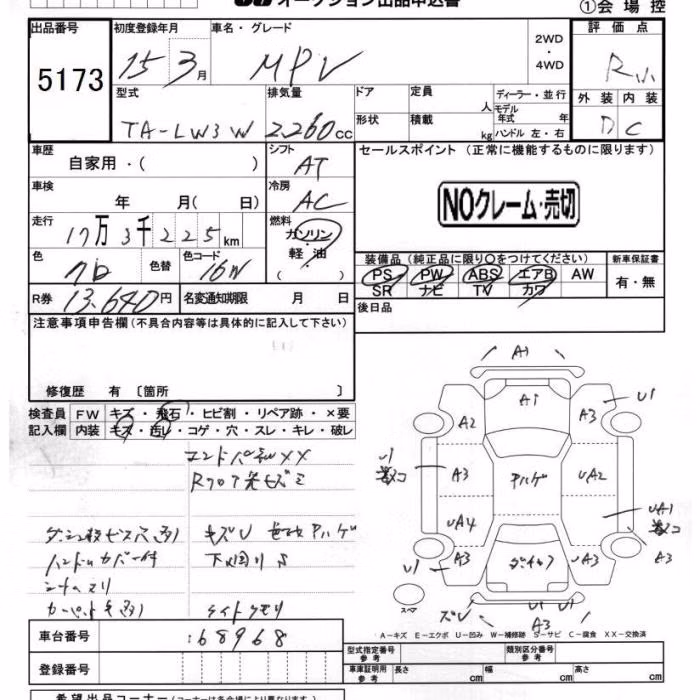 オークション出品申込書
①会場控
出品番号
5173
初度登録年月
15 3月
車名・グレード
MPV
2WD
・
4WD
評価点
R
外装 内装
D C
型式
TA-LW3W
排気量
2,260cc
ドア
定員
人
ディーラー・並行
モデル年式 年
形状
積載
kg
ハンドル 左・右
車歴
自家用・( )
シフト
AT
セールスポイント (正常に機能するものに限ります)
NOクレーム・売切
車検
年 月( 日)
冷房
AC
走行
17万3千225km
燃料
ガソリン
・
軽・油
( )
色
クロ
色替
色コード
16W
装備品(純正品に限り○をつけてください)
PS PW ABS エアB AW
SR ナビ TV カワ
新車保証書
有・無
R券
13,640円
名変通知期限 月 日
後日品
注意事項申告欄(不具合内容等は具体的に記入して下さい)
修復歴 有 〔箇所 〕
検査員記入欄
FW キズ・飛石・ヒビ割・リペア跡・×要
内装 キズ・汚レ・コゲ・穴・スレ・キレ・破レ
キズU
ハンドルカバー付
下廻りS
ライトクモリ
A1
A1
A2
A3
U1
U1
A3
Pハゲ
UA2
UA4
UA1
A3
UA3
A3
U1
U1 U1
A3
スペア
A-キズ E-エクボ U-凹み W-補修跡 S-サビ C-腐食 XX-交換済
車台番号
168968
登録番号
型式指定番号
参考
類別区分番号
参考
車庫証明用
参考
長さ cm
幅 cm
高さ cm
希望出品コーナー